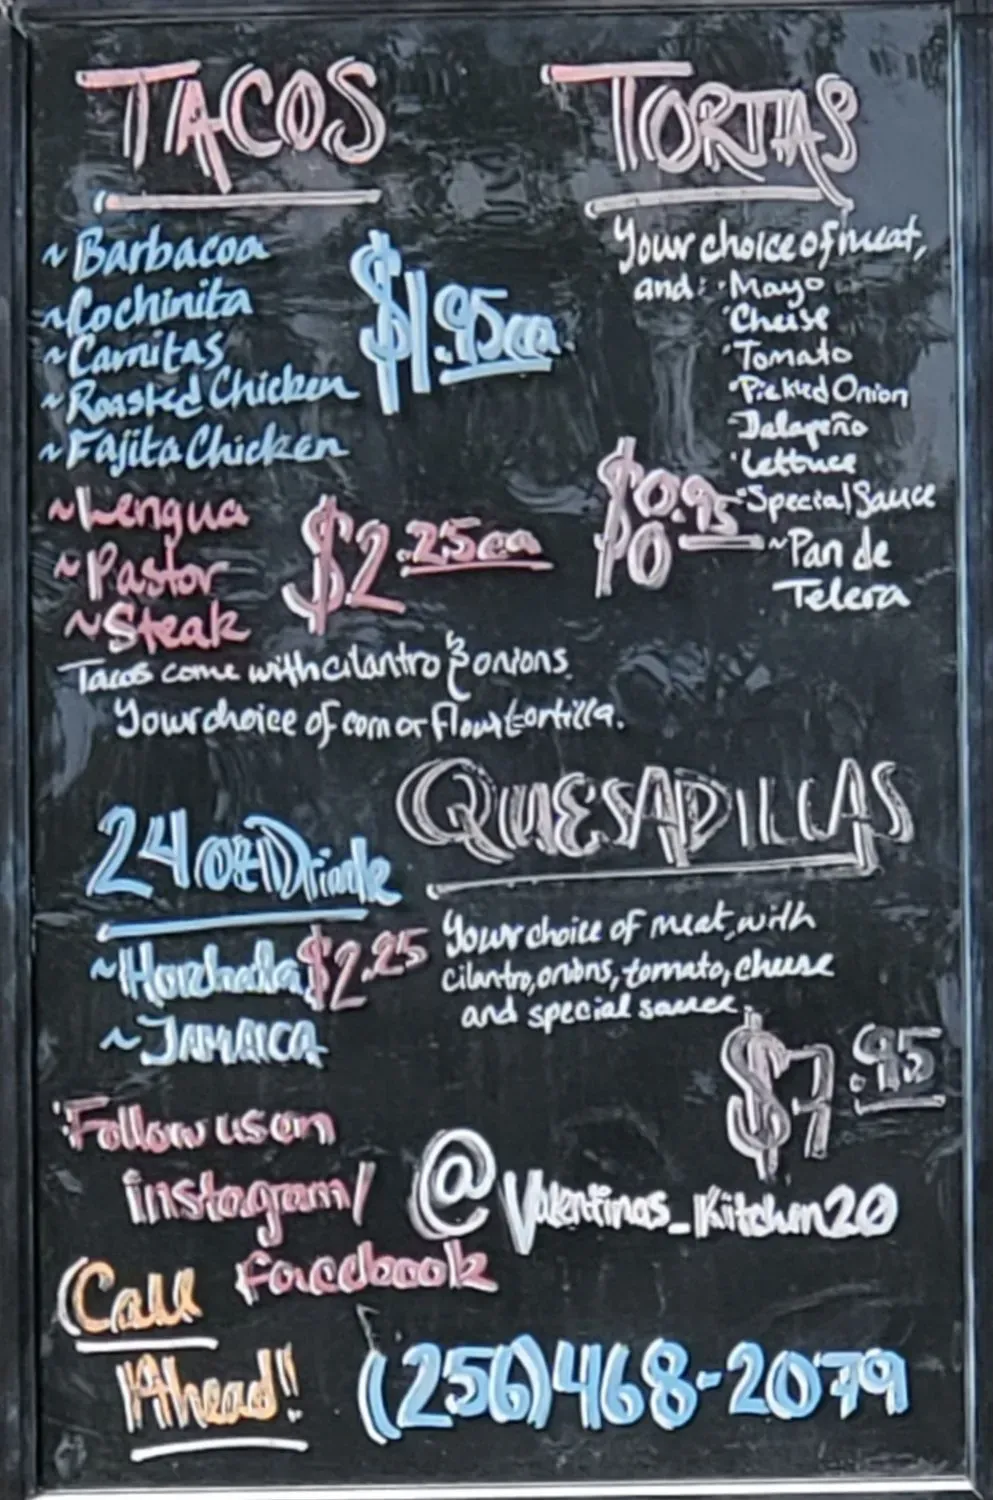 TACOS
~Barbacoa
~Cochinita
~Carnitas
~Roasted Chicken
~Fajita Chicken
$1.95ea
~Lengua
~Pastor
~Steak
$2.25ea
Tacos come with cilantro & onions.
Your choice of corn or flour tortilla.
TORTAS
Your choice of meat,
and: ·Mayo
·Cheese
·Tomato
·Pickled Onion
·Jalapeño
·Lettuce
·Special Sauce
~Pan de
Telera
.95
24oz Drink
~Horchata $2.25
~JAMAICA
QUESADILLAS
Your choice of meat, with
cilantro, onions, tomato, cheese
and special sauce.
$7.95
Follow us on
instagram/
facebook
@Valentinas_Kiitchen20
Call
Ahead!!
(256)468-2079